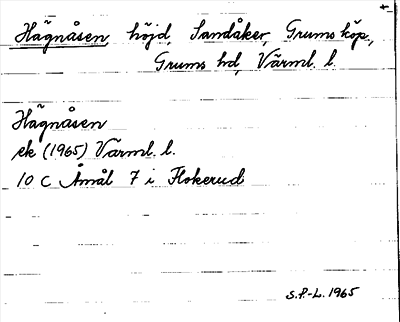 Hägnåsen, höjd, Sandåker, Grums köp.,
Grums hd, Värml. l.
Hägnåsen
ek (1965) Värml. l.
10 C Åmål 7 i Flokerud
S.P.-L. 1965